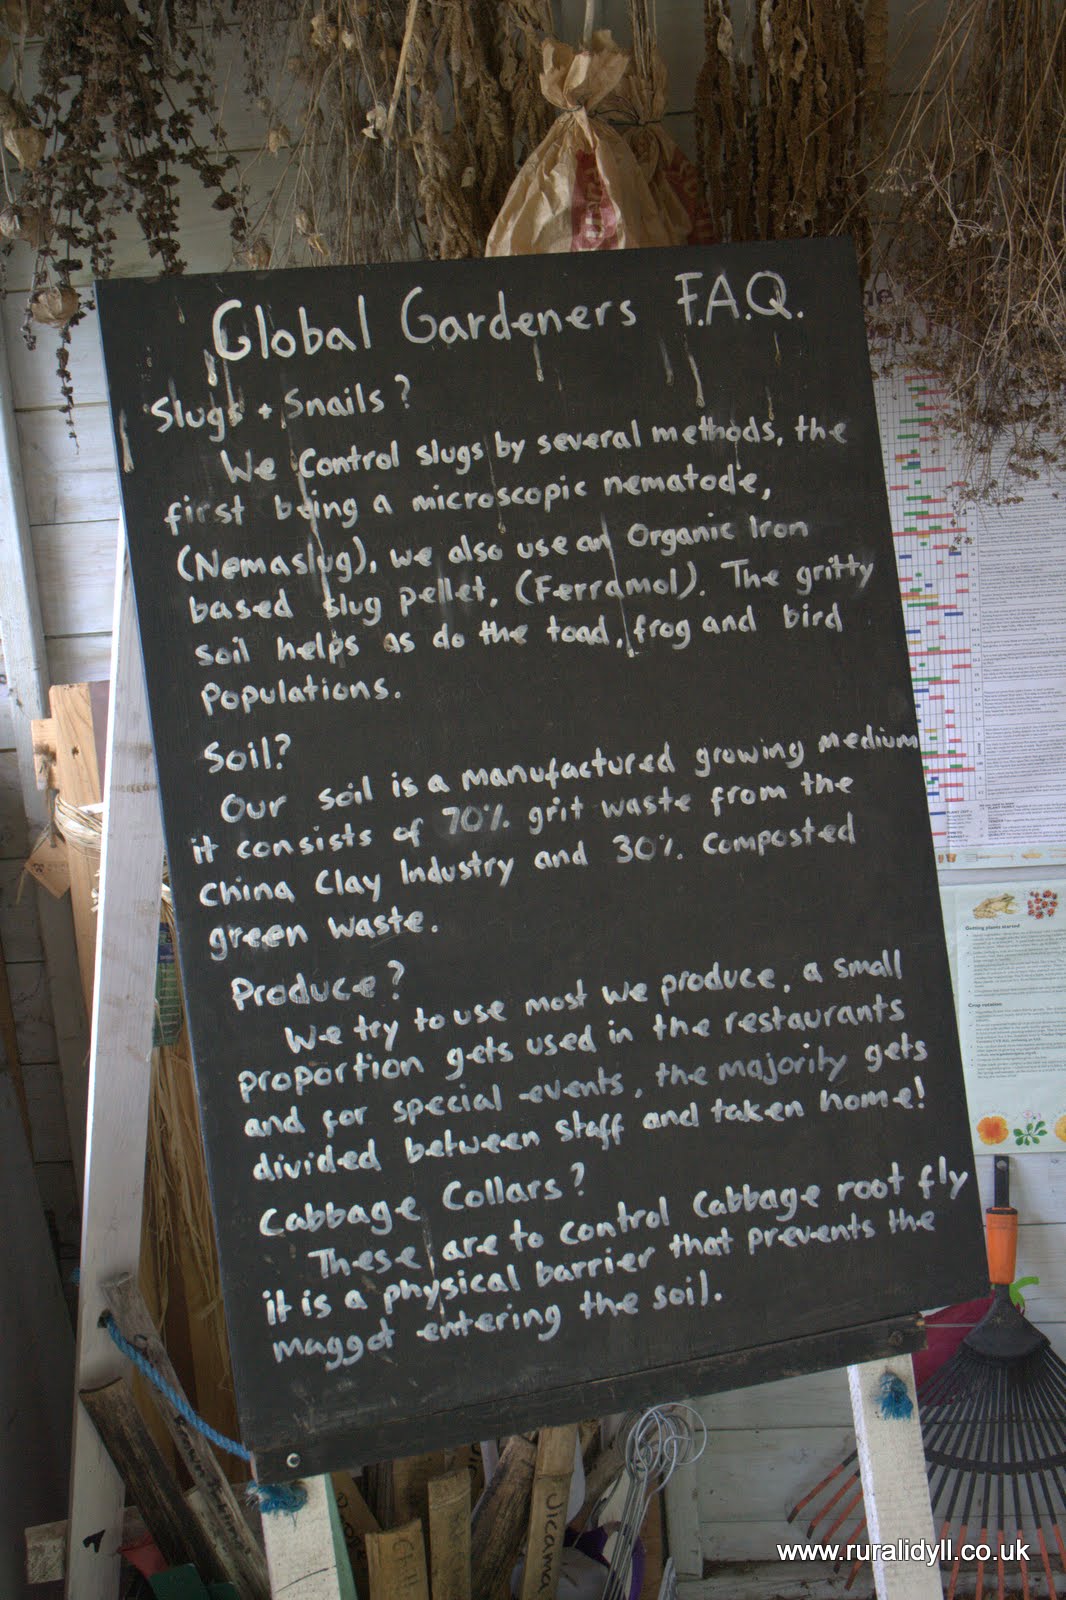 Global Gardeners F.A.Q.
Slugs + Snails?
We Control slugs by several methods, the
first being a microscopic nematode,
(Nemaslug), we also use an Organic Iron
based slug pellet, (Ferramol). The gritty
soil helps as do the toad, frog and bird
populations.
Soil?
Our soil is a manufactured growing medium
it consists of 70% grit waste from the
China Clay Industry and 30% Composted
green waste.
Produce?
We try to use most we produce, a small
proportion gets used in the restaurants
and for special events, the majority gets
divided between staff and taken home!
Cabbage Collars?
These are to control Cabbage root fly
it is a physical barrier that prevents the
maggot entering the soil.
Getting plants started
Crop rotation
www.ruralidyll.co.uk